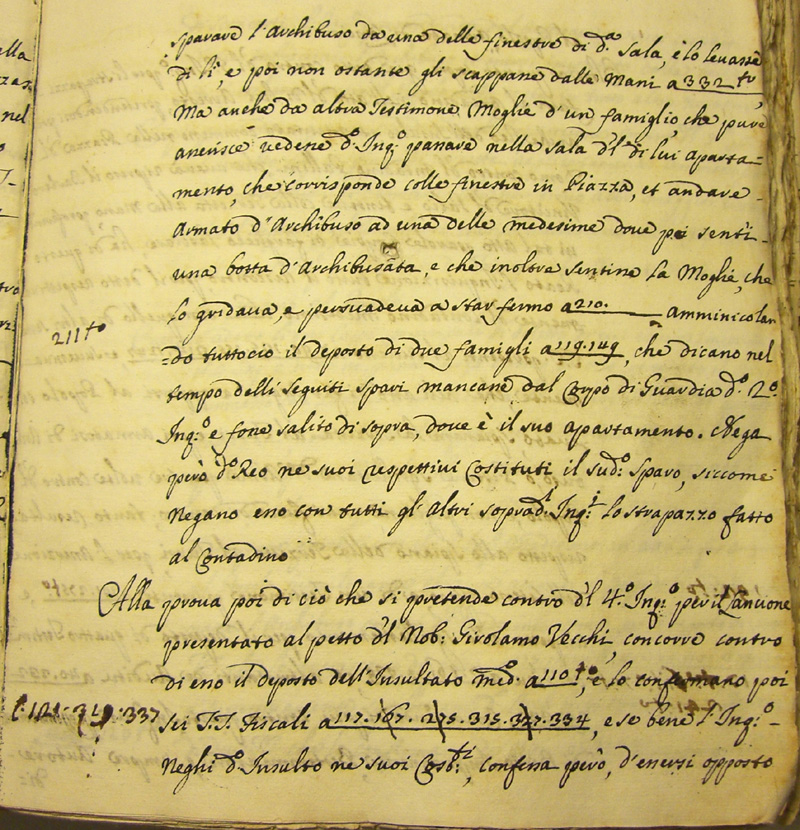 sparare l'Archibuso da una delle finestre di d.ª sala, e lo levasse
di lì, e poi non ostante gli scappasse dalle mani a 332 t.º
Ma anche da altra Testimone Moglie d'un famiglio, che pure
asserisce vedesse d.º Inq.º passare nella sala d'l di lui aparta=
mento, che corrisponde colle finestre in Piazza, et andare
Armato d'Archibuso ad una delle medesime dove poi sentì
una botta d'Archibusata, e che inoltre sentisse la Moglie, che
lo gridava, e persuadeva a star fermo a 210. amminicolan
211 t.º
=do tuttociò il deposto di due famigli a 119. 149, che dicano nel
tempo delli seguiti spari mancasse dal Corpo di Guardia d.º 2.º
Inq.º e fosse salito di sopra, dove è il suo apartamento. Nega
però d.º Reo ne suoi respettivi Costituti il sud.º sparo, siccome
negano esso con tutti gl'altri soprad.i Inq.i lo strapazzo fatto
al Contadino
Alla prova poi di ciò che si pretende contro d'l 4.º Inq.º per il
presentato al petto d'l Nob: Girolamo Vecchi, concorre contro
di esso il deposto dell'Insultato med.º a 110 t.º, e lo confermano poi
337
sei T.T. Fiscali a 117. 167. 275. 315. 327. 334, e se bene l'Inq.º
Neghi d.º Insulto ne suoi Cost.ti, confessa però, d'essersi opposto